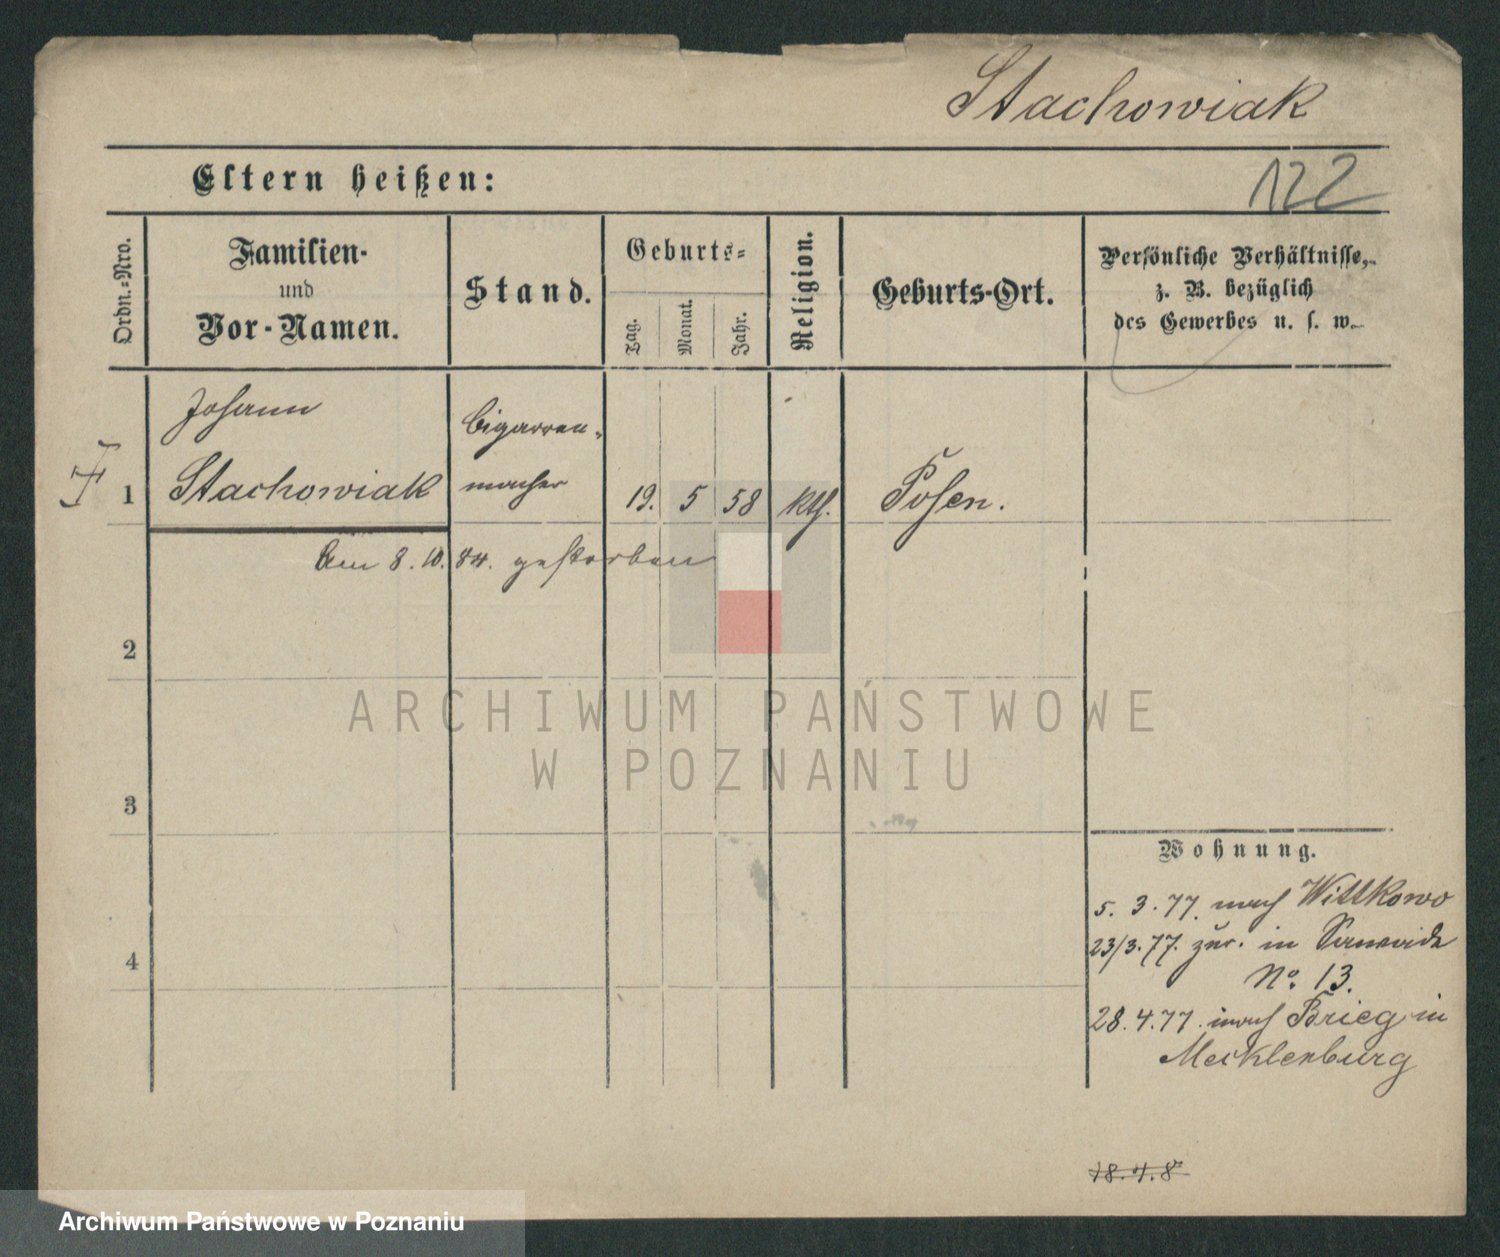 Stachowiak
Eltern heißen:
122
Ordn.-Nro.
Familien-
und
Vor-Namen.
Stand.
Geburts-
Tag.
Monat.
Jahr.
Religion.
Geburts-Ort.
Persönliche Verhältnisse,
z. B. bezüglich
des Gewerbes u. s. w.
Johann
Cigarren-
1 Stachowiak macher 19. 5 58 kth. Posen.
Am 8. 10. 84. gestorben
2
3
4
ARCHIWUM PAŃSTWOWE
W POZNANIU
Wohnung.
5. 3. 77. nach Wittkowo
23/3. 77. zur. in
No. 13.
28. 4. 77. nach Brieg in
Mecklenburg
18. 4. 8
Archiwum Państwowe w Poznaniu